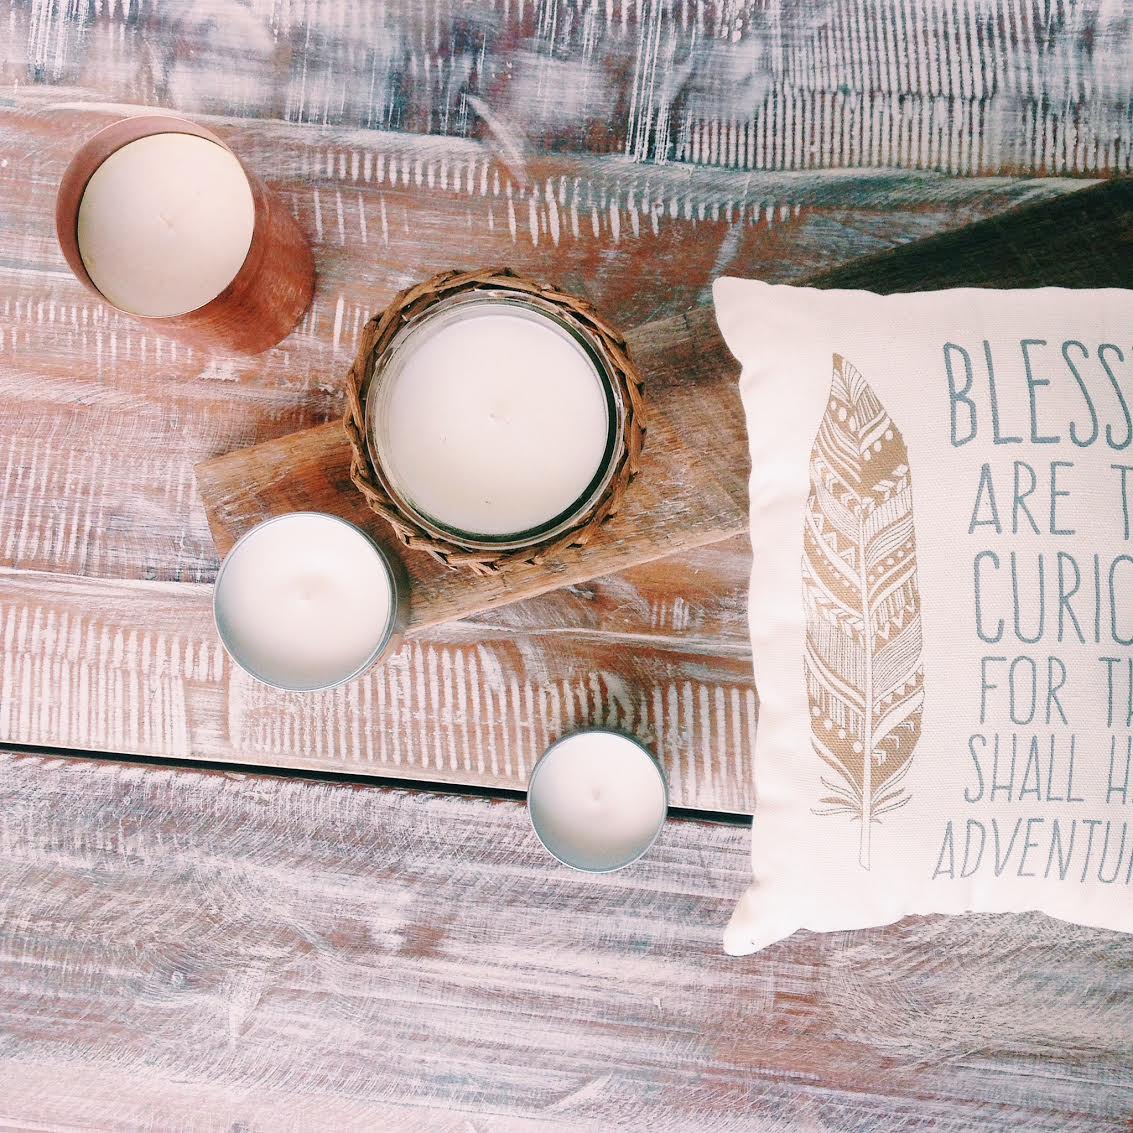 BLESS
ARE T
CURIO
FOR TH
SHALL H
ADVENTU